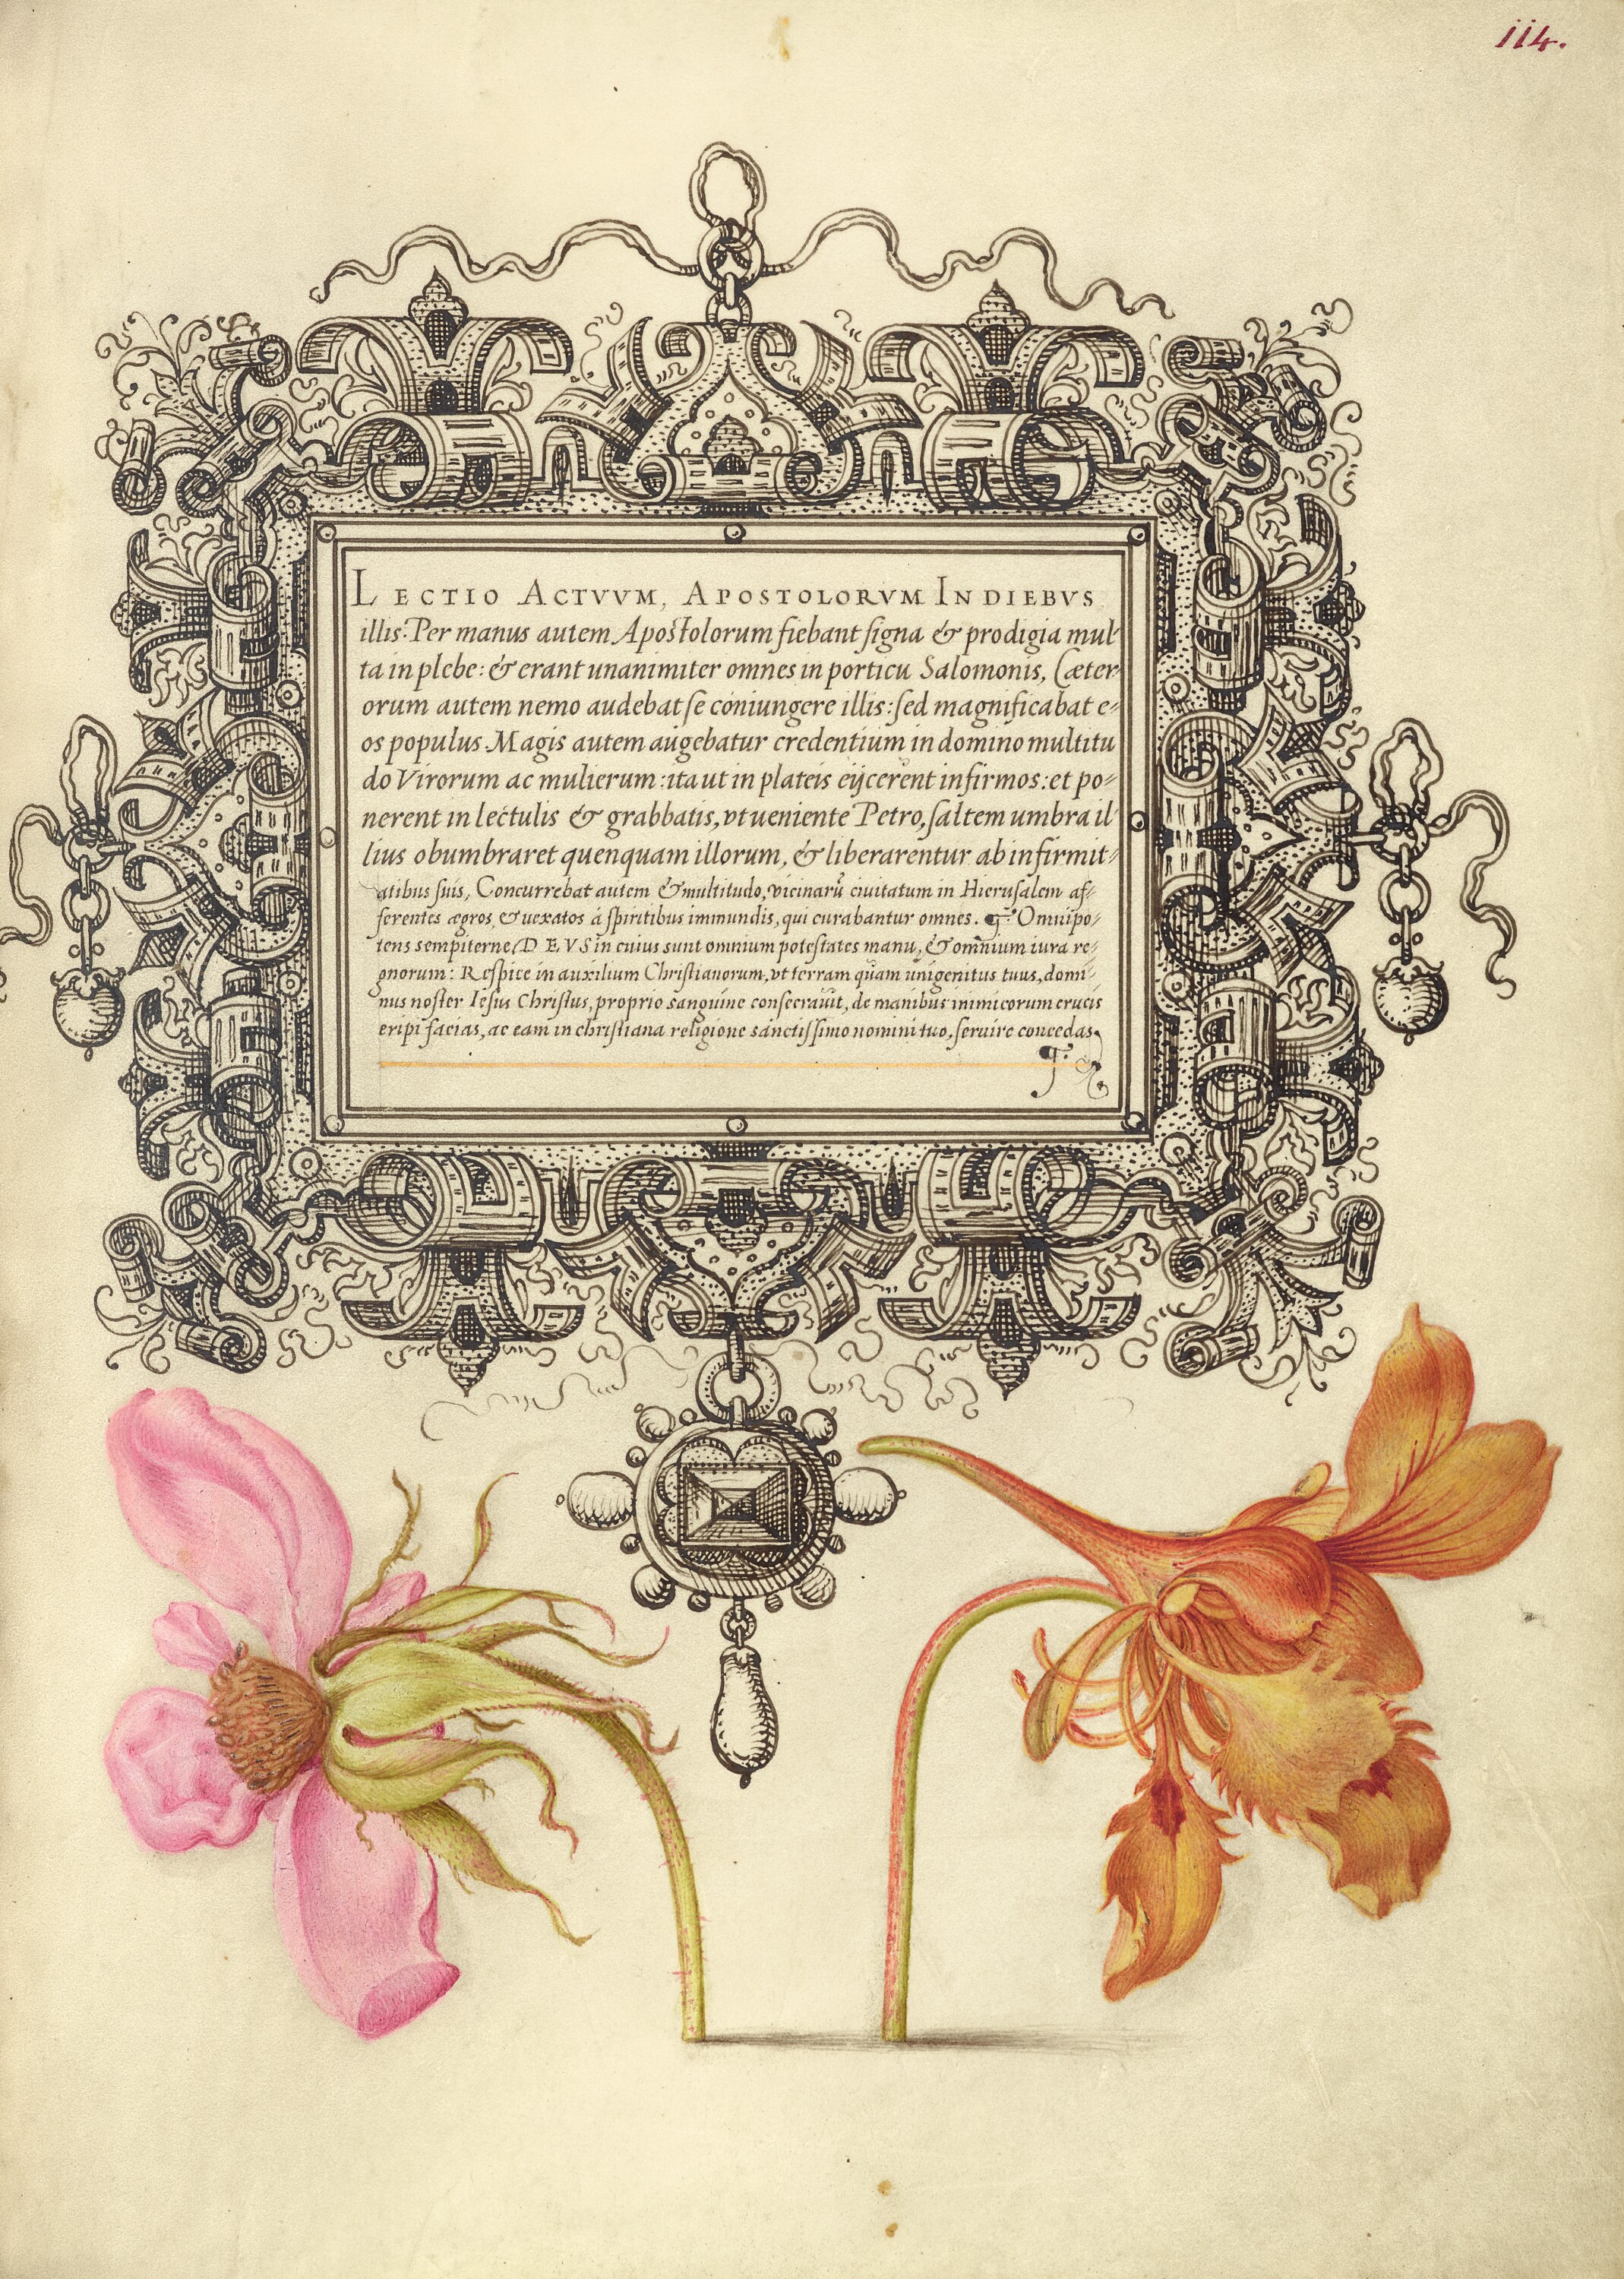 114.
LECTIO ACTVVM, APOSTOLORVM IN DIEBVS
illis: Per manus autem Apostolorum fiebant signa & prodigia mul-
ta in plebe: & erant unanimiter omnes in porticu Salomonis, Cæter-
orum autem nemo audebat se coniungere illis: sed magnificabat e-
os populus Magis autem augebatur credentium in domino multitu
do Virorum ac mulierum: ita ut in plateis eijcerent infirmos: et po-
nerent in lectulis & grabbatis, vt ueniente Petro, saltem umbra il-
lius obumbraret quenquam illorum, & liberarentur ab infirmit-
atibus suis, Concurrebat autem & multitudo, vicinarū ciuitatum in Hierusalem af-
ferentes ægros, & uexatos á spiritibus immundis, qui curabantur omnes. Omnipo-
tens sempiterne, DEVS in cuius sunt omnium potestates manu, & omnium iura re-
gnorum: Respice in auxilium Christianorum, vt terram quam unigenitus tuus, domi-
nus noster Iesus Christus, proprio sanguine consecrauit, de manibus inimicorum crucis
eripi facias, ac eam in christiana religione sanctissimo nomini tuo, seruire concedas,